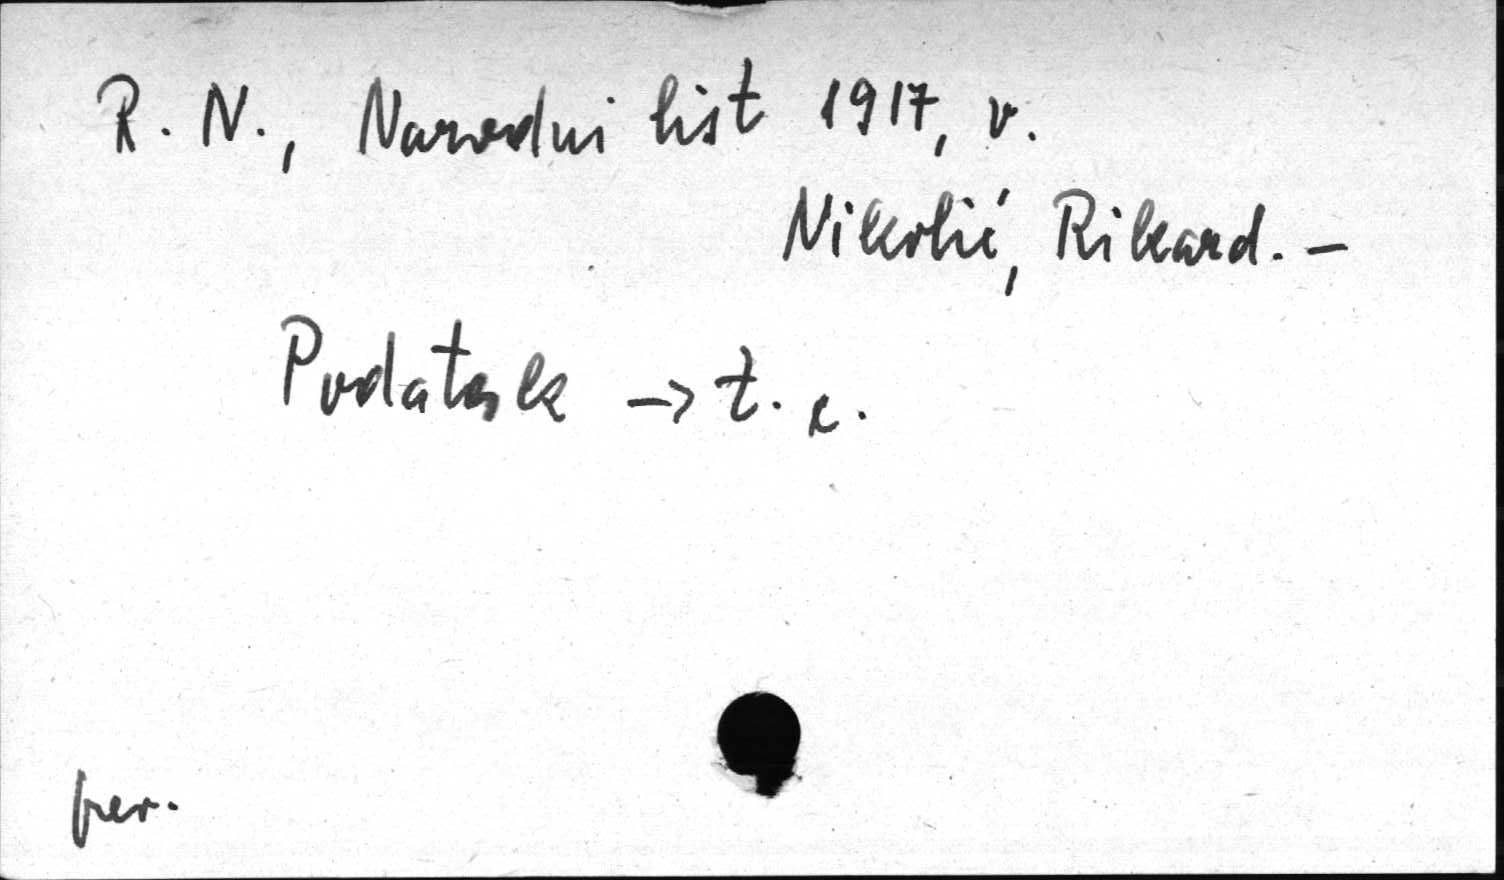 R. N., Narodni list 1917, v.
Nikolić, Rikard. –
Podatak → t. c.
per.